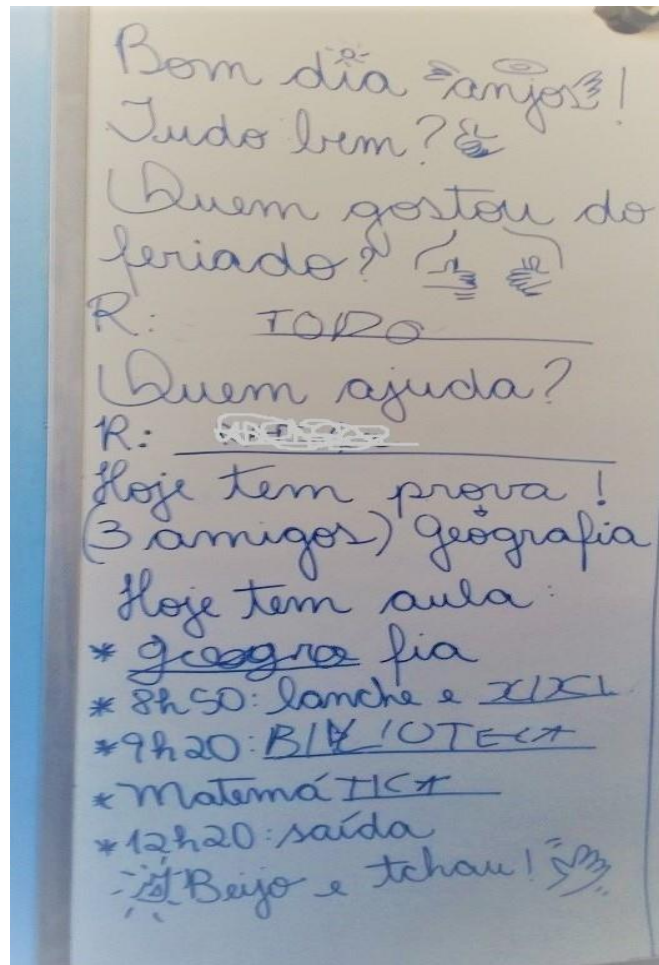 Bom dia anjos!
Tudo bem?
Quem gostou do
feriado?
R: TODO
Quem ajuda?
R:
Hoje tem prova!
(3 amigos) geografia
Hoje tem aula:
* geogra fia
* 8h50: lanche e XIXI
* 9h20: BIBLIOTECA
* Matemá TICA
* 12h20: saída
Beijo e tchau!